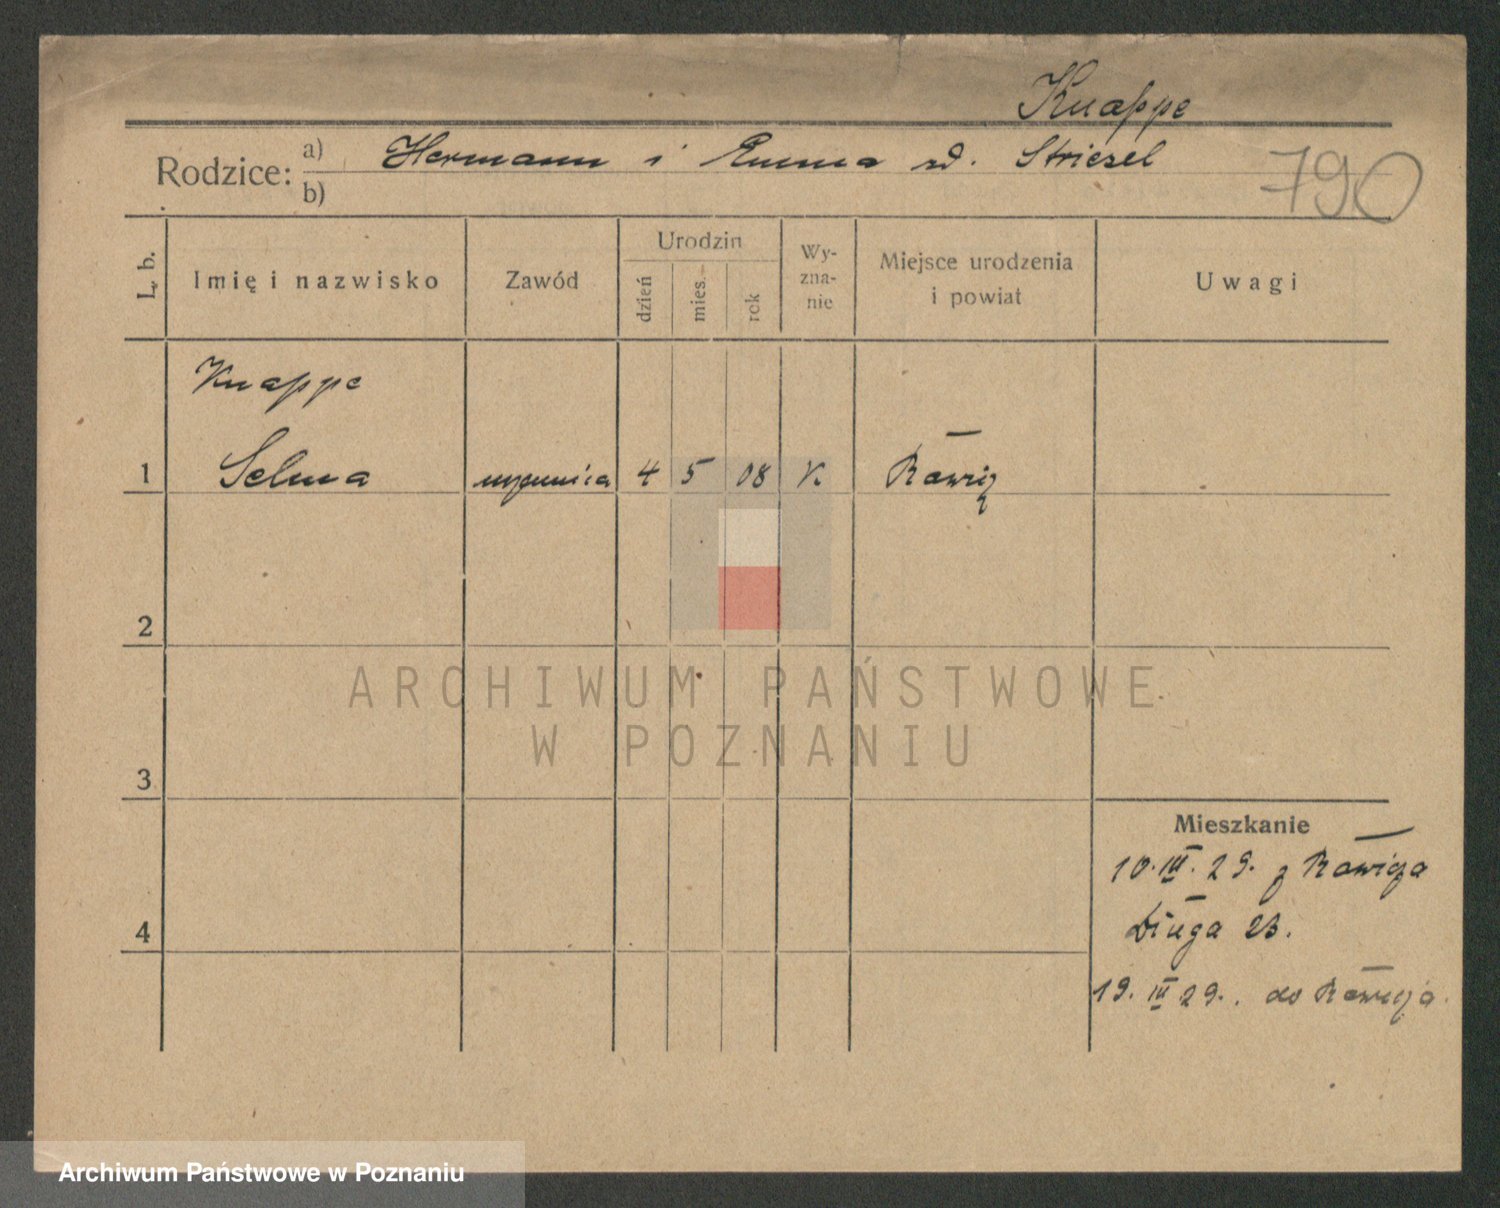 Knappe
Rodzice: a) Hermann i Emma rd. Striesel
b)
790
L. b. Imię i nazwisko Zawód Urodzin dzień mies. rok Wy-zna-nie Miejsce urodzenia i powiat Uwagi
Knappe
1 Selma 4 5 08 K Rawicz
2
ARCHIWUM PAŃSTWOWE
W POZNANIU
3
Mieszkanie
10. III. 29. z Rawicza
4 Długa 23.
19. III 29. do Rawicza.
Archiwum Państwowe w Poznaniu